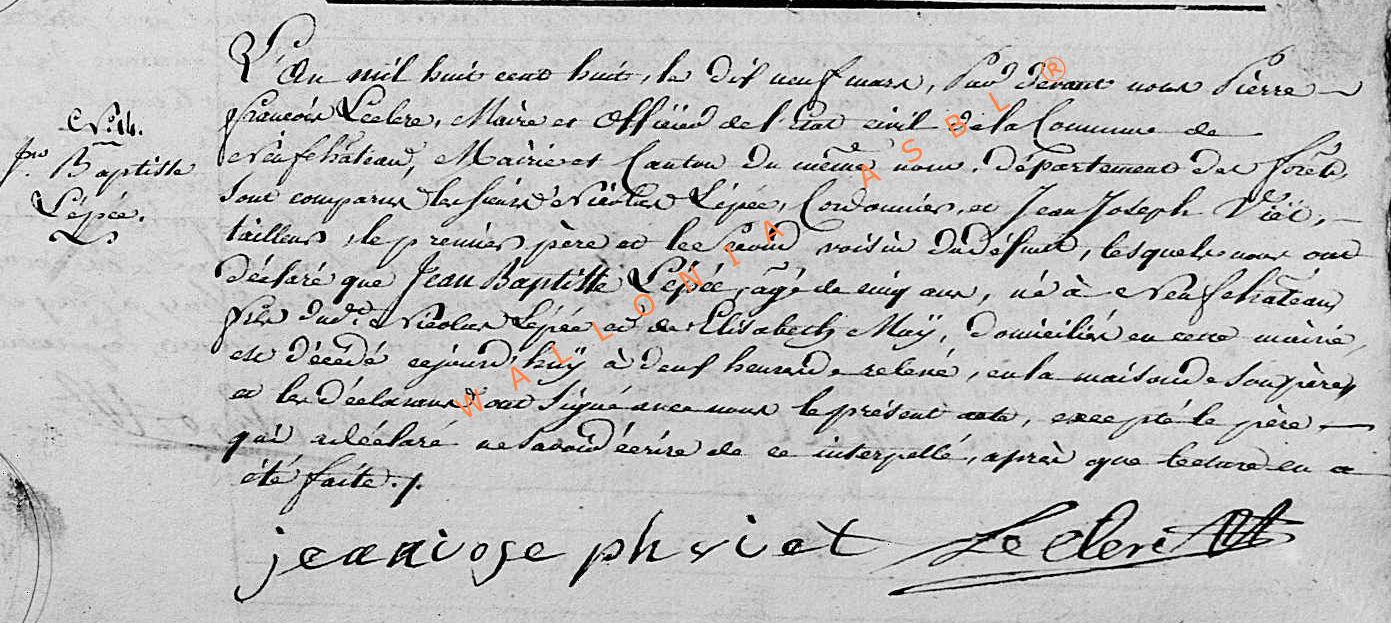 N.o 14.
Jn.
Baptiste
Lépée.
L'An mil huit cent huit, le dix neuf mars, Pard devant nous Pierre
françois Leclere, Maire et Officier de l'Etat civil de la Commune de
Neufchâteau, Mairie et Canton du même nom, département des forêts,
sont comparus les sieurs Nicolas Lépée, Cordonnier, et Jean Joseph Viët,
tailleur, le premier père et le second voisin du défunt, lesquels nous ont
déclaré que Jean Baptiste Lépée, agé de cinq ans, né à Neufchâteau,
fils dud.t Nicolas Lépée et de Elisabeth Muÿ, domiciliés en cette mairie,
est décédé cejourd'huÿ à deux heures de relevé, en la maison de son père,
et les déclarans ont signé avec nous le présent acte, excepté le père
qui a déclaré ne savoir écrire de ce interpellé, après que lecture en a
été faite./.
jean iose ph viet Leclere
WALLONIA ASBL ®